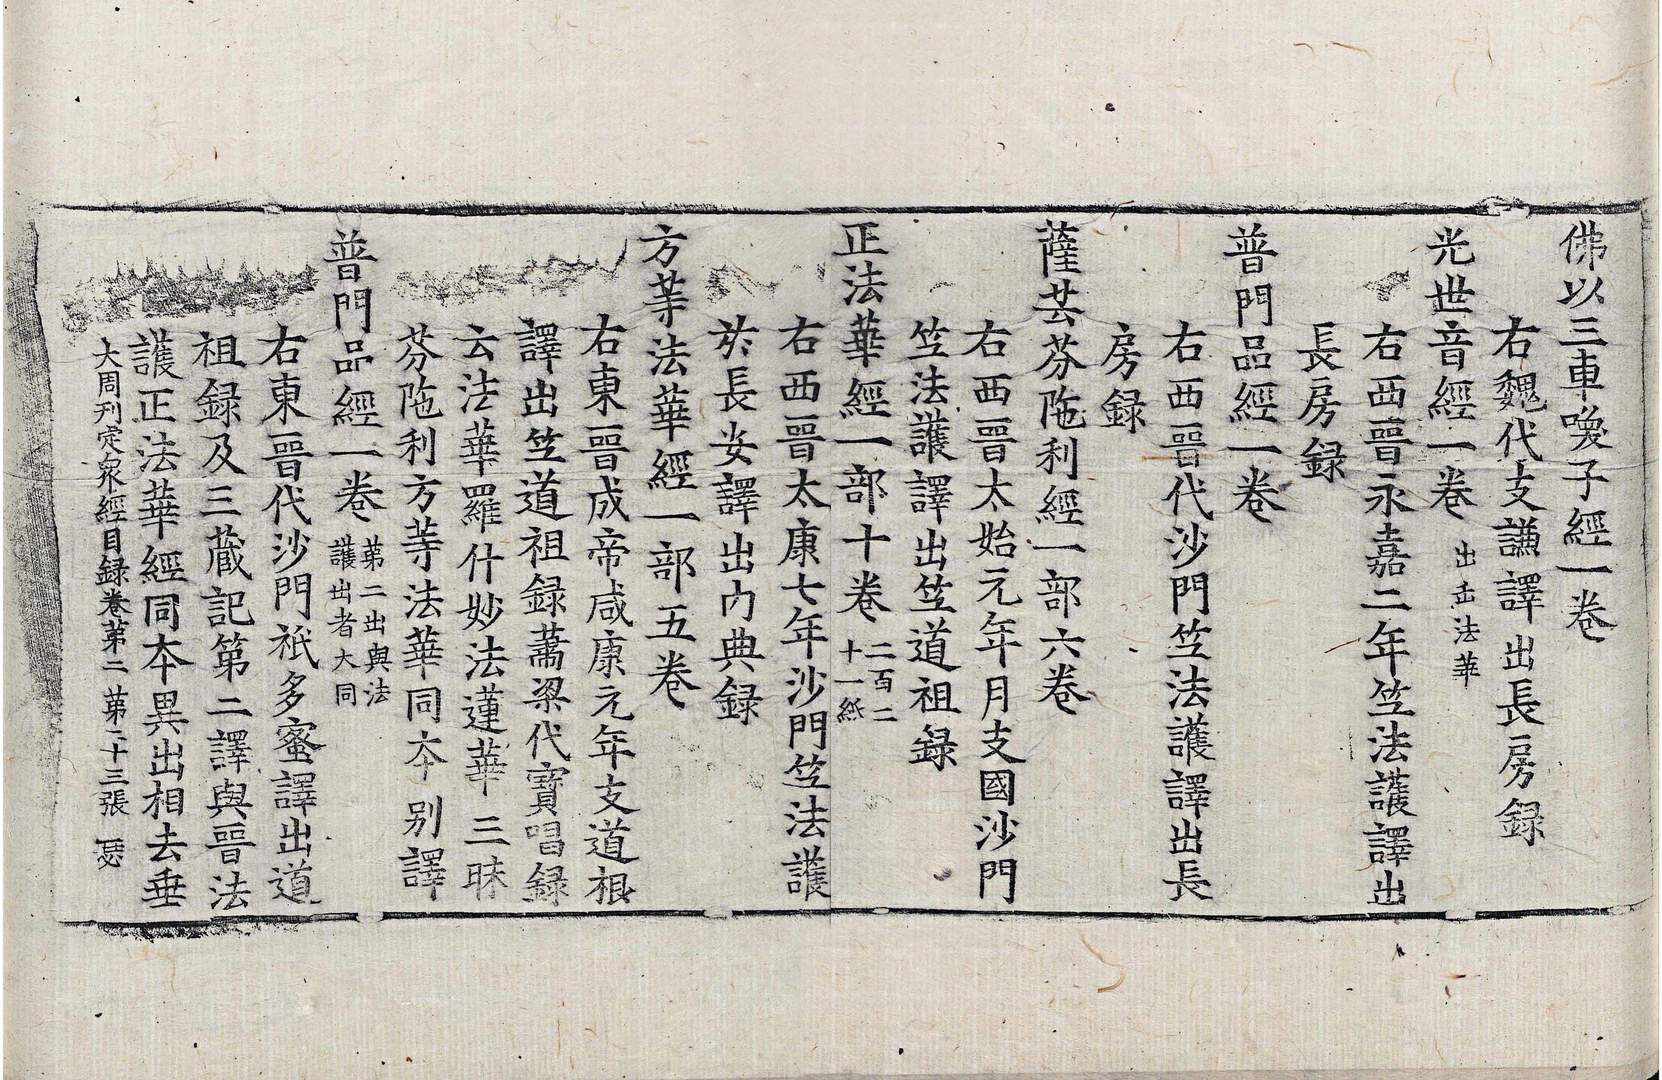 佛以三車喚子經一卷
右魏代支謙譯出長房録
光世音經一卷 出正法華
右西晉永嘉二年竺法護譯出
長房録
普門品經一卷
右西晉代沙門竺法護譯出長
房録
薩芸芬陁利經一部六卷
右西晉太始元年月支國沙門
竺法護譯出竺道祖録
正法華經一部十卷 二百二十一紙
右西晉太康七年沙門竺法護
於長安譯出内典録
方等法華經一部五卷
右東晉成帝咸康元年支道根
譯出竺道祖録蕭梁代寶唱録
云法華羅什妙法蓮華三昧
芬陁利方等法華同本别譯
普門品經一卷 第二出與法護出者大同
右東晉代沙門祇多蜜譯出道
祖録及三藏記第二譯與晉法
護正法華經同本異出相去垂
大周刊定衆經目録卷第二 第二十三張